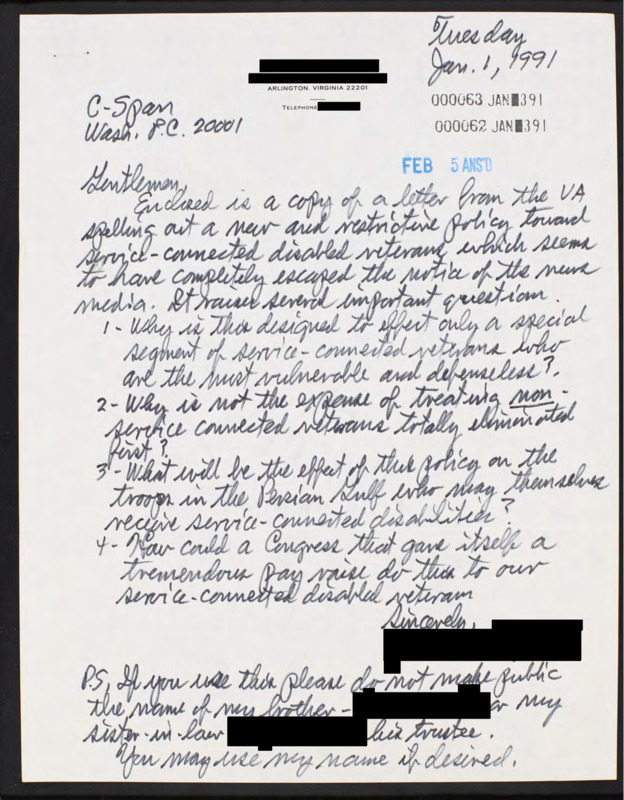 Tuesday
Jan. 1, 1991
ARLINGTON, VIRGINIA 22201
TELEPHONE
000063 JAN 391
000062 JAN 391
C-Span
Wash. D.C. 20001
FEB 5 ANS'D
Gentlemen,
Enclosed is a copy of a letter from the VA
spelling out a new and restrictive policy toward
service-connected disabled veterans which seems
to have completely escaped the notice of the news
media. It raises several important questions.
1- Why is this designed to effect only a special
segment of service-connected veterans who
are the most vulnerable and defenseless?
2- Why is not the expense of treating non-
service connected veterans totally eliminated
first?
3- What will be the effect of this policy on the
troops in the Persian Gulf who may themselves
receive service-connected disabilities?
4- How could a Congress that gave itself a
tremendous pay raise do this to our
service-connected disabled veterans
Sincerely,
P.S. If you use this please do not make public
the name of my brother- or my
sister-in-law his trustee.
You may use my name if desired.